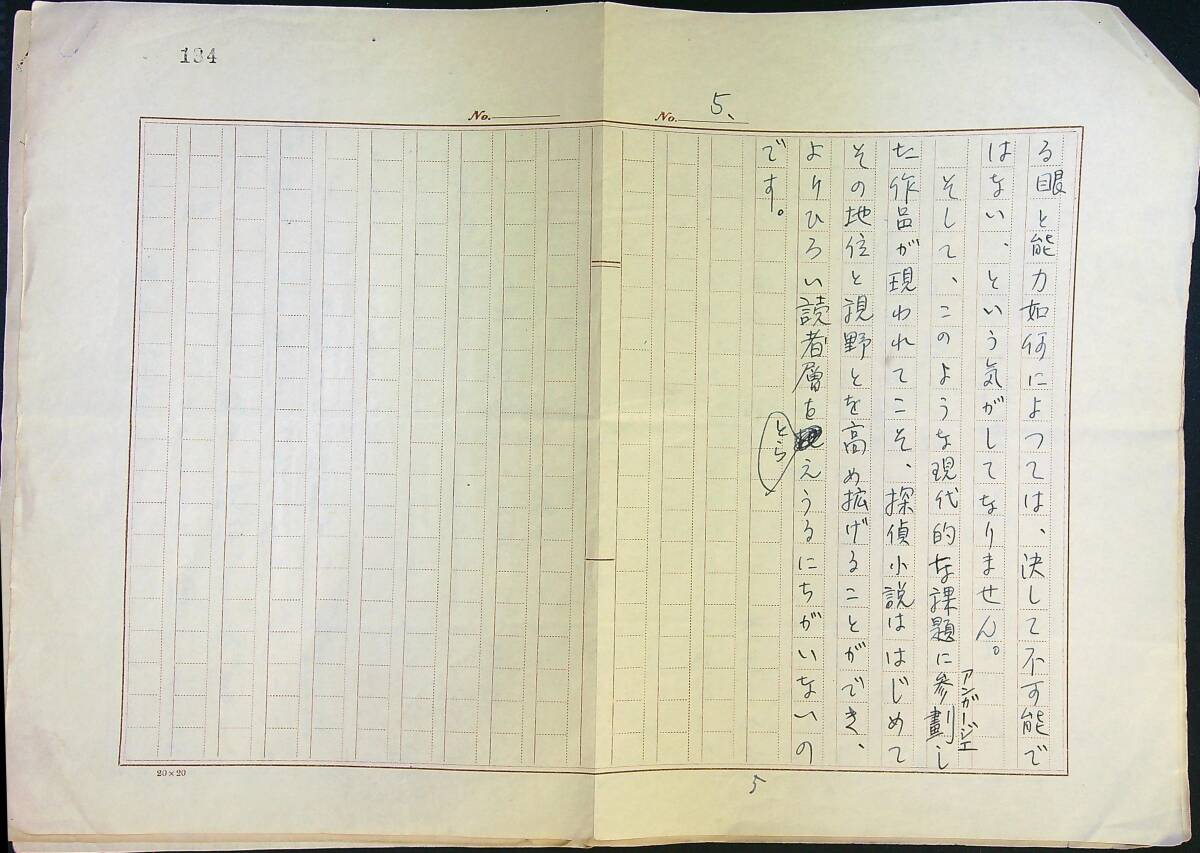 134
No.
No. 5、
る眼と能力如何によっては、決して不可能で
はない、という気がしてなりません。
そして、このような現代的な課題に参劃し
アンガージェ
た作品が現われてこそ、探偵小説ははじめて
その地位と視野とを高め拡げることができ、
よりひろい読者層をえうるにちがいないの
とら
です。
20×20
5